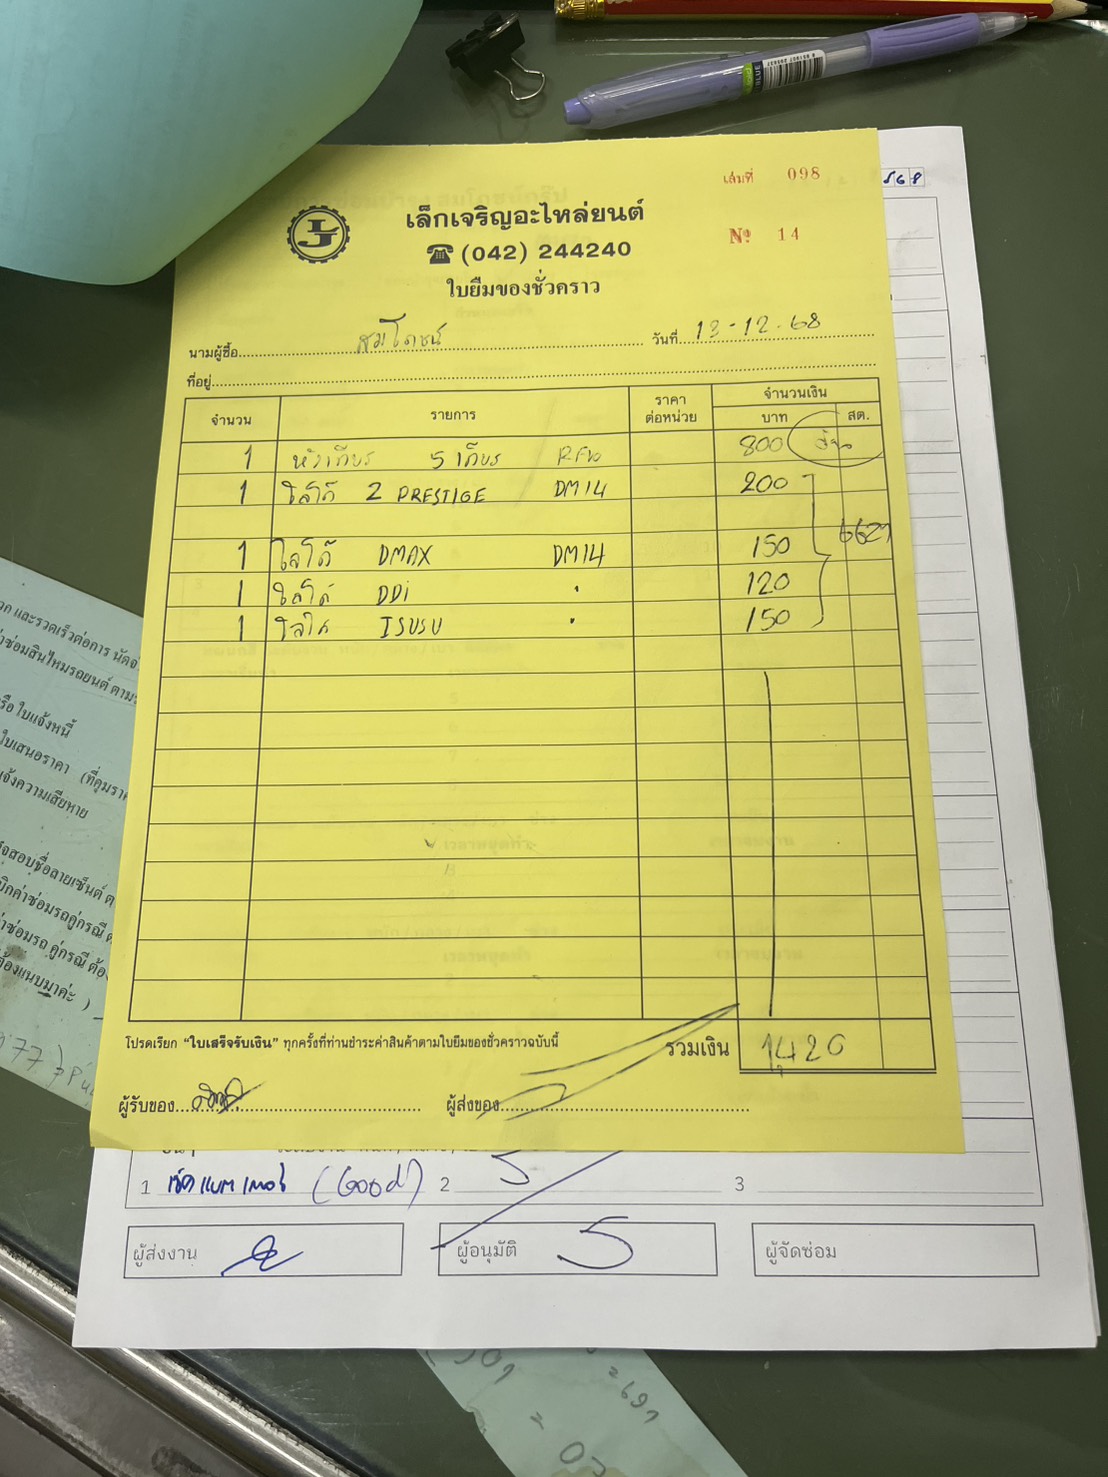 เล่มที่ 098
568
เล็กเจริญอะไหล่ยนต์
(042) 244240
№ 14
ใบยืมของชั่วคราว
นามผู้ซื้อ สมโภชน์ วันที่ 13-12-68
ที่อยู่
จำนวน รายการ ราคาต่อหน่วย จำนวนเงิน
บาท สต.
1 หัวเกียร 5 เกียร 800 คืน
1 โลโก้ 2 PRESTIGE DM14 200
1 โลโก้ DMAX DM14 150
1 โลโก้ DDi " 120
1 โลโก้ ISUSU " 150
โปรดเรียก "ใบเสร็จรับเงิน" ทุกครั้งที่ท่านชำระค่าสินค้าตามใบยืมของชั่วคราวฉบับนี้ รวมเงิน 1420
ผู้รับของ ผู้ส่งของ
1 เช็คแบตเตอรี่ (Good) 2 3
ผู้ส่งงาน ผู้อนุมัติ ผู้จัดซ่อม
และรวดเร็วต่อการ นัด
ค่าซ่อมสินไหมรถยนต์ ตาม
รือ ใบแจ้งหนี้
ใบเสนอราคา (ที่คุมรา
จ้งความเสียหาย
สอบชื่อลายเซ็นต์
ค่าซ่อมรถคู่กรณี
ค่าซ่อมรถ คู่กรณี ต้อง
ต้องแนบมาค่ะ )
BLUE